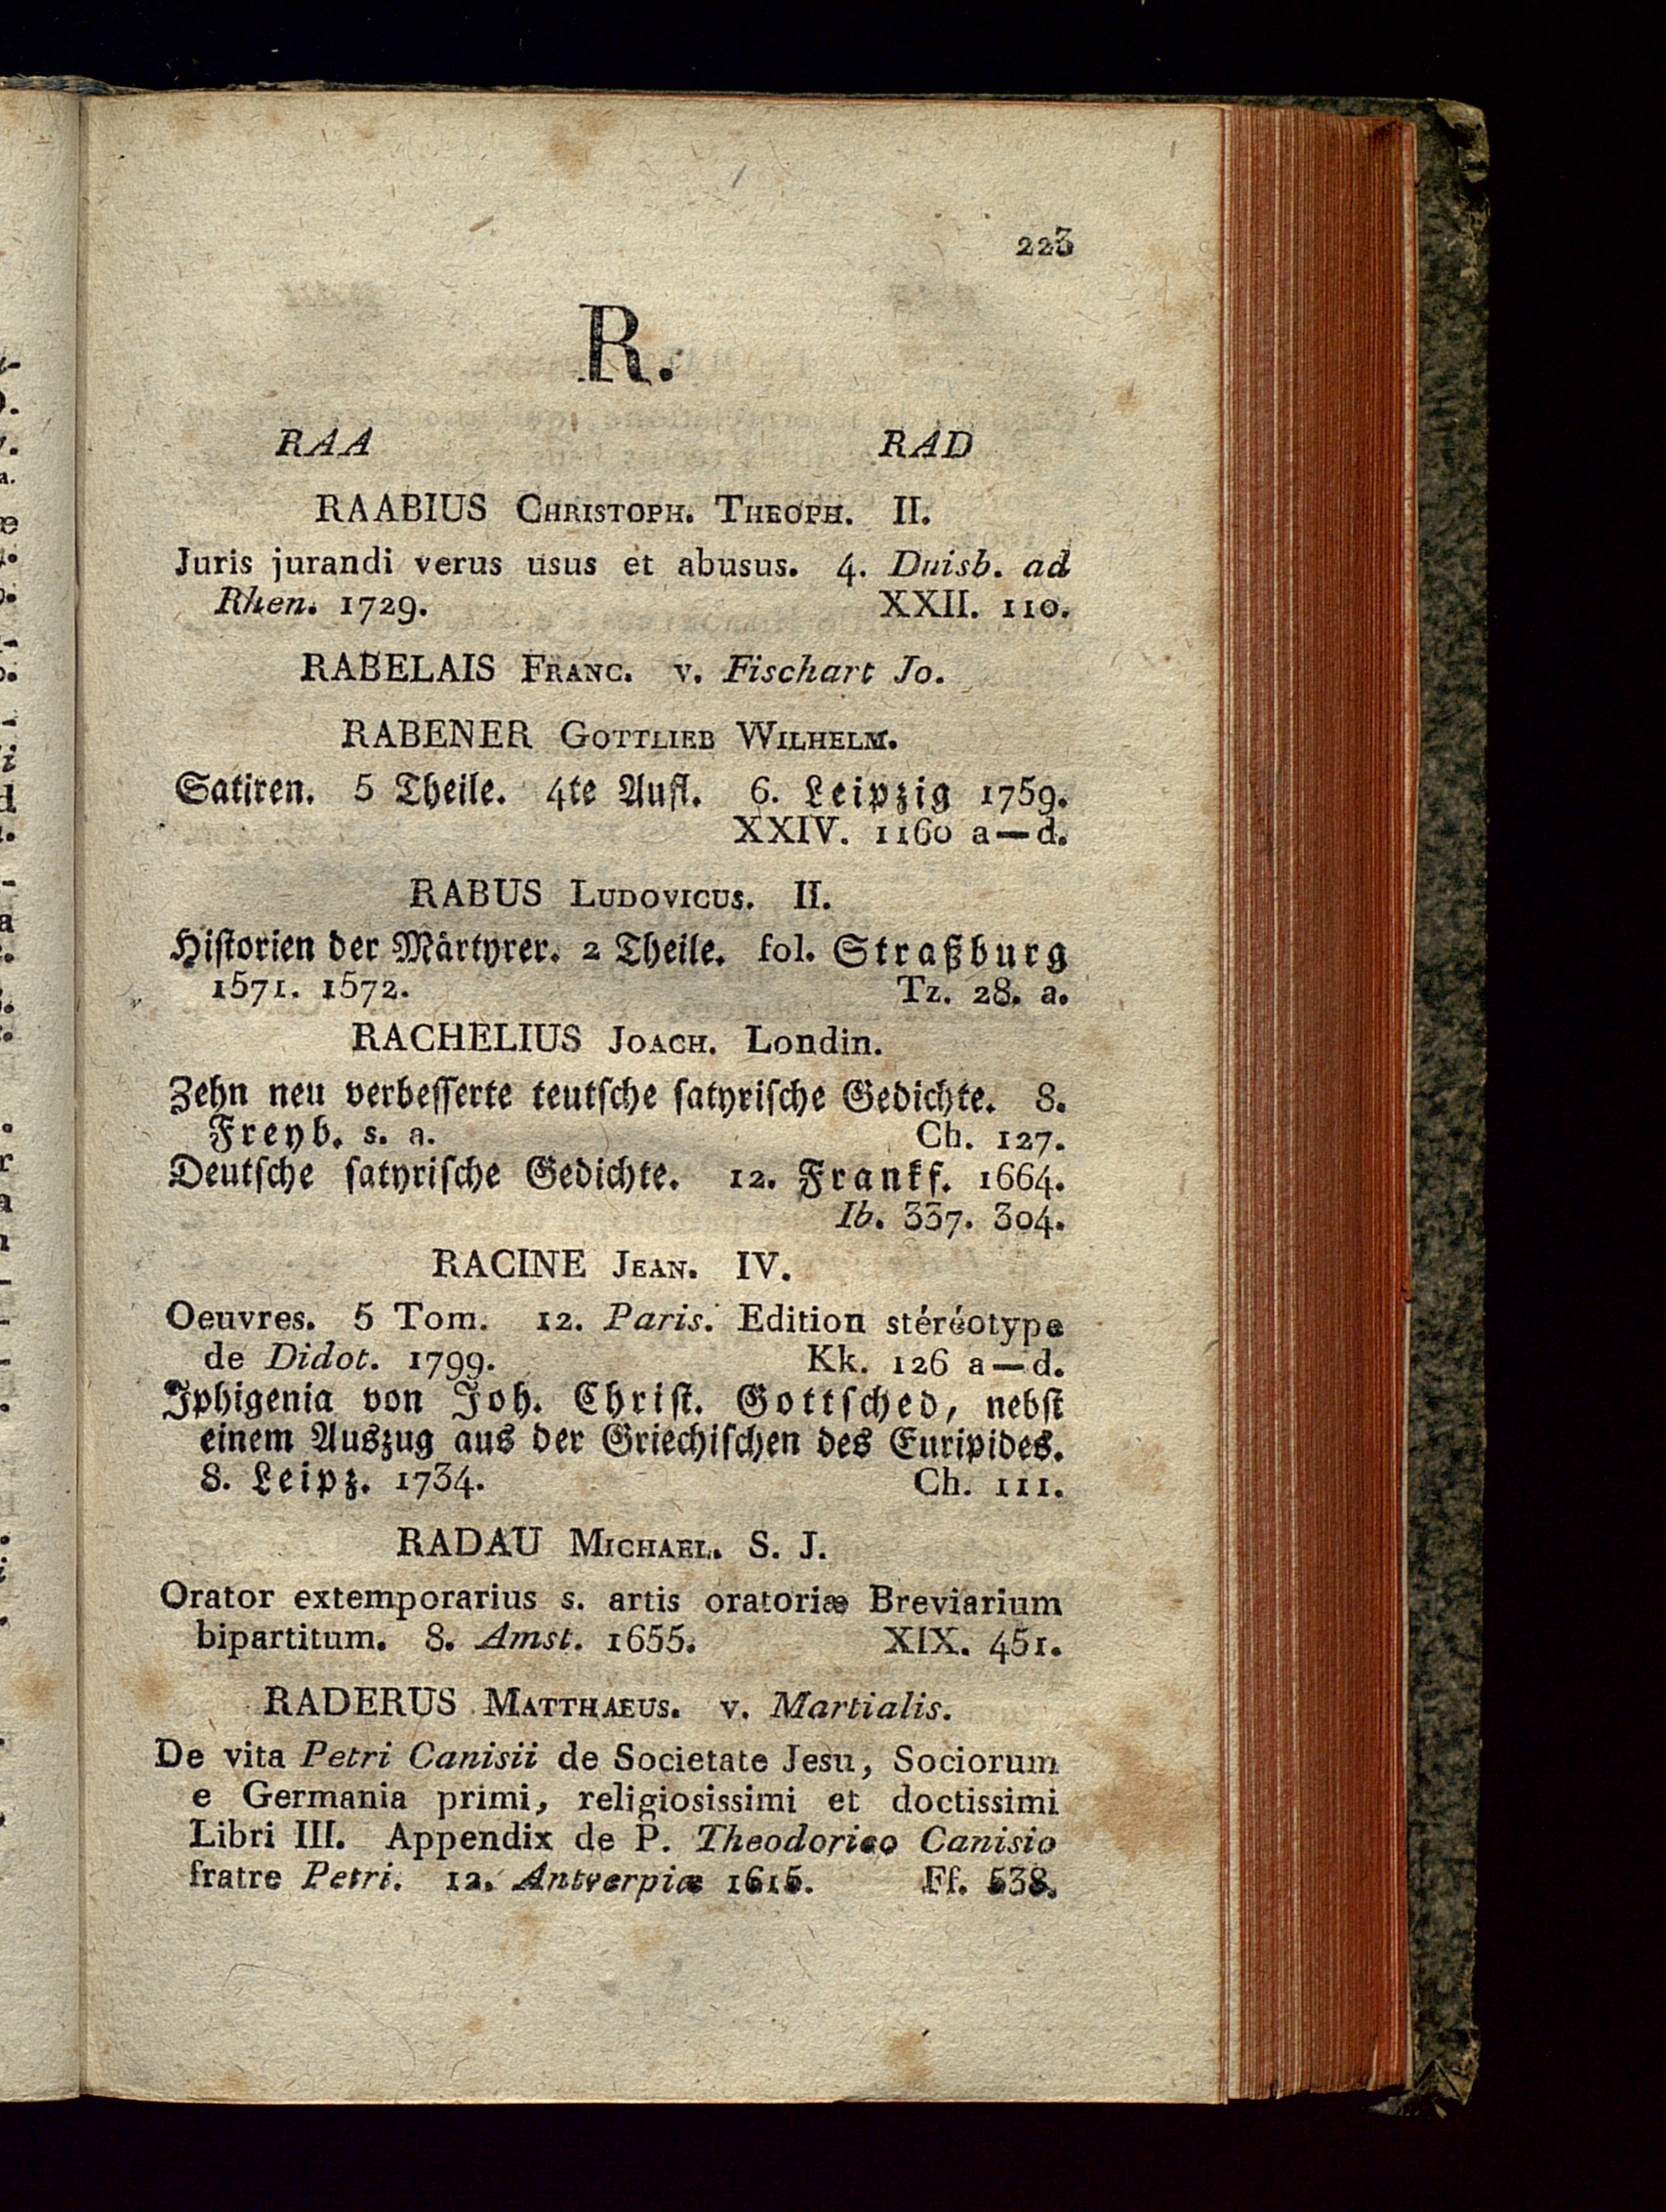 223
R.
RAA RAD
RAABIUS CHRISTOPH. THEOPH. II.
Juris jurandi verus usus et abusus. 4. Duisb. ad
Rhen. 1729. XXII. 110.
RABELAIS FRANC. v. Fischart Jo.
RABENER GOTTLIEB WILHELM.
Satiren. 5 Theile. 4te Aufl. 6. Leipzig 1759.
XXIV. 1160 a—d.
RABUS LUDOVICUS. II.
Historien der Märtyrer. 2 Theile. fol. Straßburg
1571. 1572. Tz. 28. a.
RACHELIUS JOACH. Londin.
Zehn neu verbesserte teutsche satyrische Gedichte. 8.
Freyb. s. a. Ch. 127.
Deutsche satyrische Gedichte. 12. Frankf. 1664.
Ib. 337. 304.
RACINE JEAN. IV.
Oeuvres. 5 Tom. 12. Paris. Edition stéréotype
de Didot. 1799. Kk. 126 a—d.
Iphigenia von Joh. Christ. Gottsched, nebst
einem Auszug aus der Griechischen des Euripides.
8. Leipz. 1734. Ch. 111.
RADAU MICHAEL. S. J.
Orator extemporarius s. artis oratoriæ Breviarium
bipartitum. 8. Amst. 1655. XIX. 451.
RADERUS MATTHAEUS. v. Martialis.
De vita Petri Canisii de Societate Jesu, Sociorum
e Germania primi, religiosissimi et doctissimi
Libri III. Appendix de P. Theodorico Canisio
fratre Petri. 12. Antverpiæ 1615. Ff. 538.